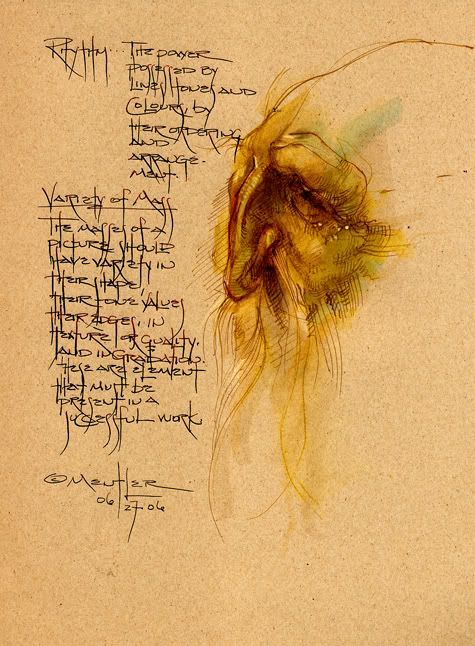 Rhythm... The power
possessed by
lines, tones and
colours, by
their ordering
and
arrange-
ment.
Variety of Mass
The masses of a
picture should
have variety in
their shape,
their tone values
their edges, in
texture or quality,
and in gradation.
These are element
that must be
present in a
successful work
© Mentler
06
27 06